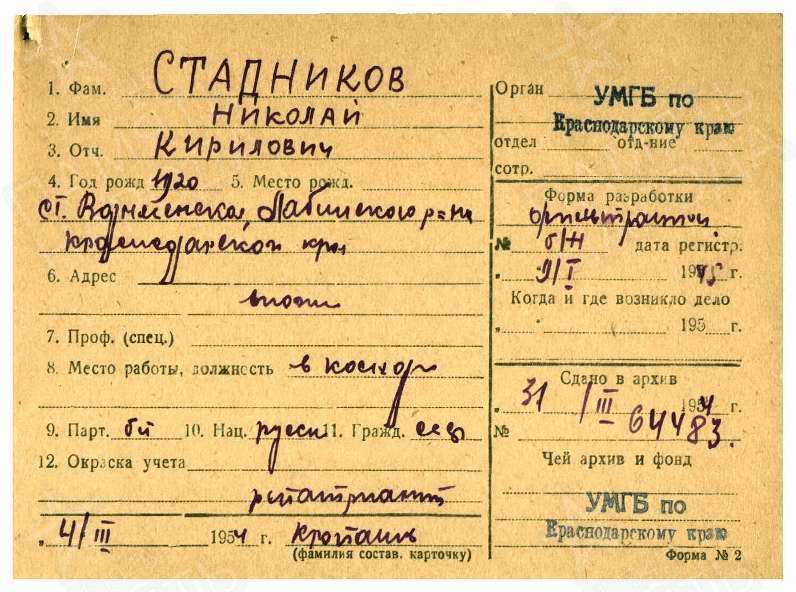 1. Фам. СТАДНИКОВ
2. Имя НИКОЛАЙ
3. Отч. КИРИЛОВИЧ
4. Год рожд 1920 5. Место рожд.
ст. Лабинского р-на
Краснодарской края
6. Адрес
7. Проф. (спец.)
8. Место работы, должность в колхоз
9. Парт. б/п 10. Нац. русск 11. Гражд. ссср
12. Окраска учета
репатриант
„ 4/III 1954 г.
(фамилия состав. карточку)
Орган УМГБ по
Краснодарскому краю
отдел отд-ние
сотр.
Форма разработки
№ б/н дата регистр.
„ 9/I 1945 г.
Когда и где возникло дело
„ 195 г.
Сдано в архив
„ 31/III 1954 г.
№ 64483.
Чей архив и фонд
УМГБ по
Краснодарскому краю
Форма № 2